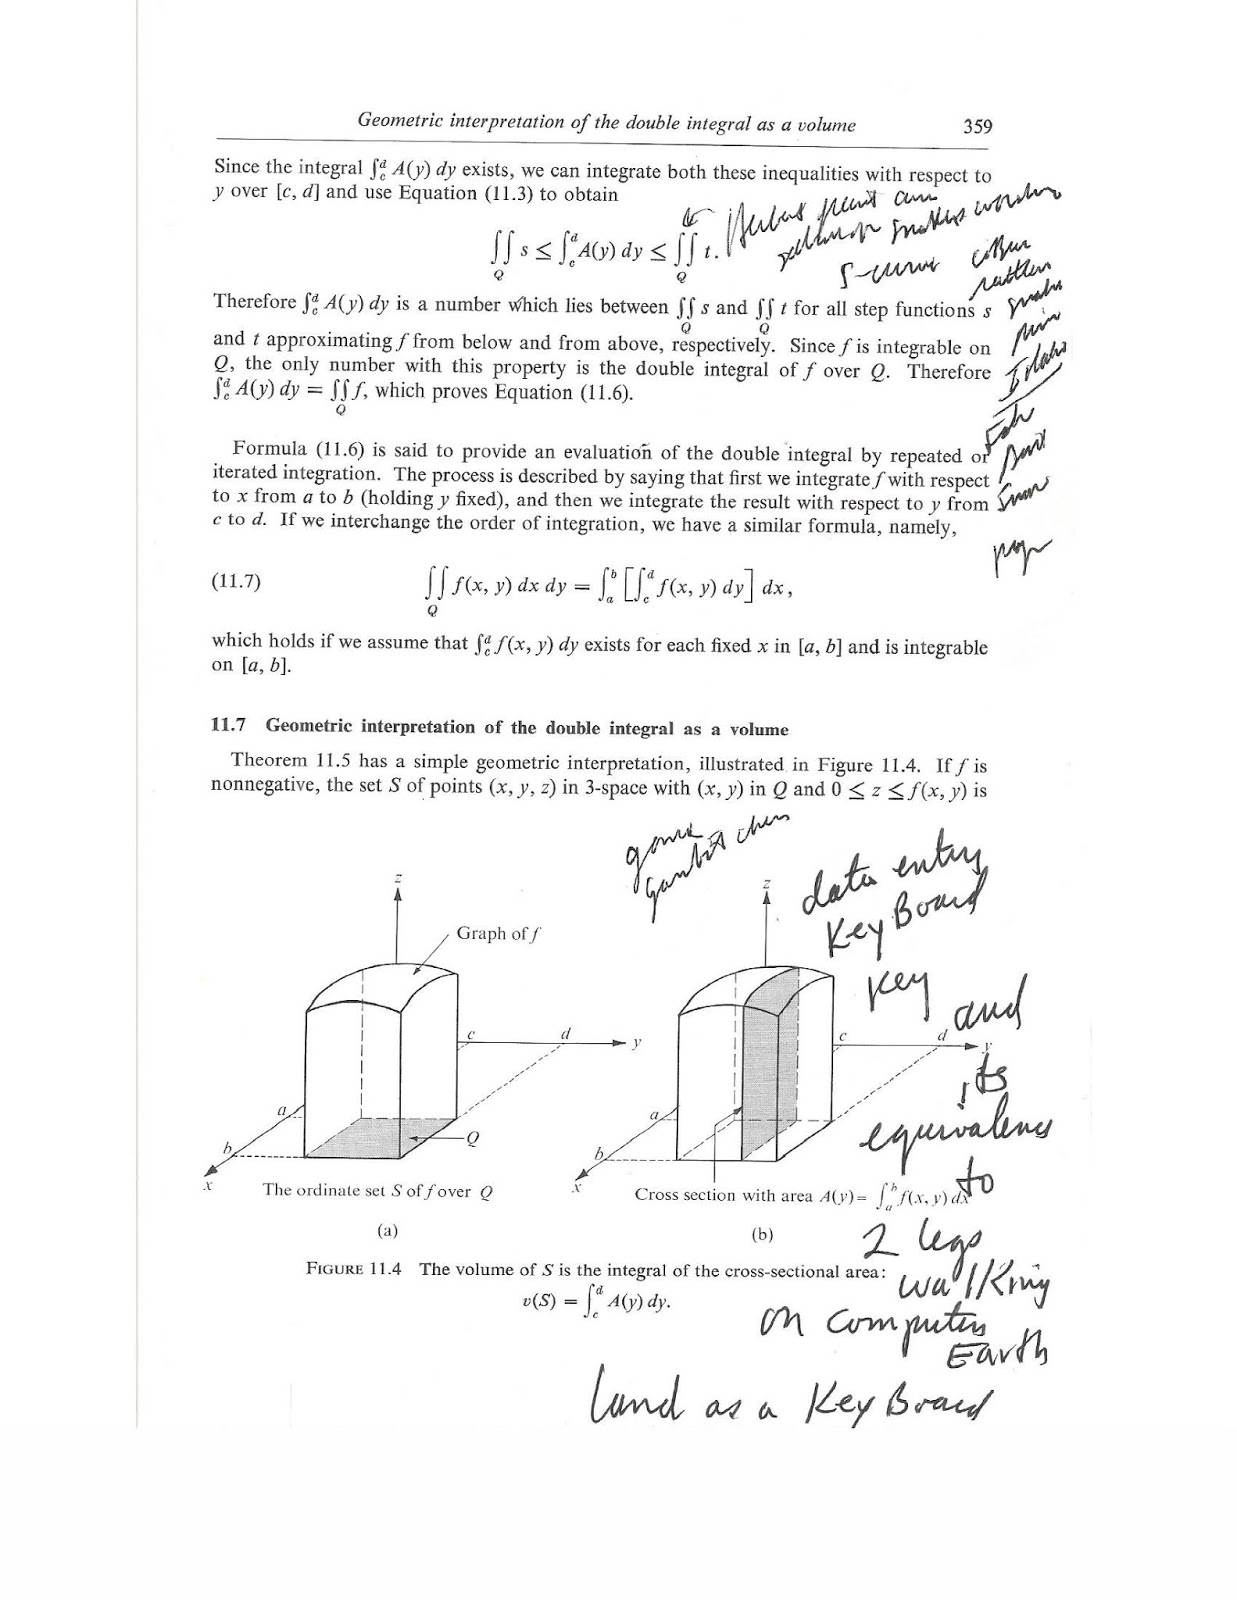 Geometric interpretation of the double integral as a volume 359
Since the integral ∫_c^d A(y) dy exists, we can integrate both these inequalities with respect to
y over [c, d] and use Equation (11.3) to obtain
∬_Q s ≤ ∫_c^d A(y) dy ≤ ∬_Q t.
S-curve
Therefore ∫_c^d A(y) dy is a number which lies between ∬_Q s and ∬_Q t for all step functions s
and t approximating f from below and from above, respectively. Since f is integrable on
Q, the only number with this property is the double integral of f over Q. Therefore
∫_c^d A(y) dy = ∬_Q f, which proves Equation (11.6).
Idaho
Formula (11.6) is said to provide an evaluation of the double integral by repeated or
iterated integration. The process is described by saying that first we integrate f with respect
to x from a to b (holding y fixed), and then we integrate the result with respect to y from
c to d. If we interchange the order of integration, we have a similar formula, namely,
(11.7) ∬_Q f(x, y) dx dy = ∫_a^b [∫_c^d f(x, y) dy] dx,
which holds if we assume that ∫_c^d f(x, y) dy exists for each fixed x in [a, b] and is integrable
on [a, b].
11.7 Geometric interpretation of the double integral as a volume
Theorem 11.5 has a simple geometric interpretation, illustrated in Figure 11.4. If f is
nonnegative, the set S of points (x, y, z) in 3-space with (x, y) in Q and 0 ≤ z ≤ f(x, y) is
game
gambit chess
data entry
KeyBoard
Key
and
its
equivalency
to
2 legs
walking
on computer
Earth
land as a KeyBoard
z
Graph of f
c
d
y
a
b
x
Q
The ordinate set S of f over Q
(a)
z
c
d
y
a
b
x
Cross section with area A(y) = ∫_a^b f(x, y) dx
(b)
FIGURE 11.4 The volume of S is the integral of the cross-sectional area:
v(S) = ∫_c^d A(y) dy.